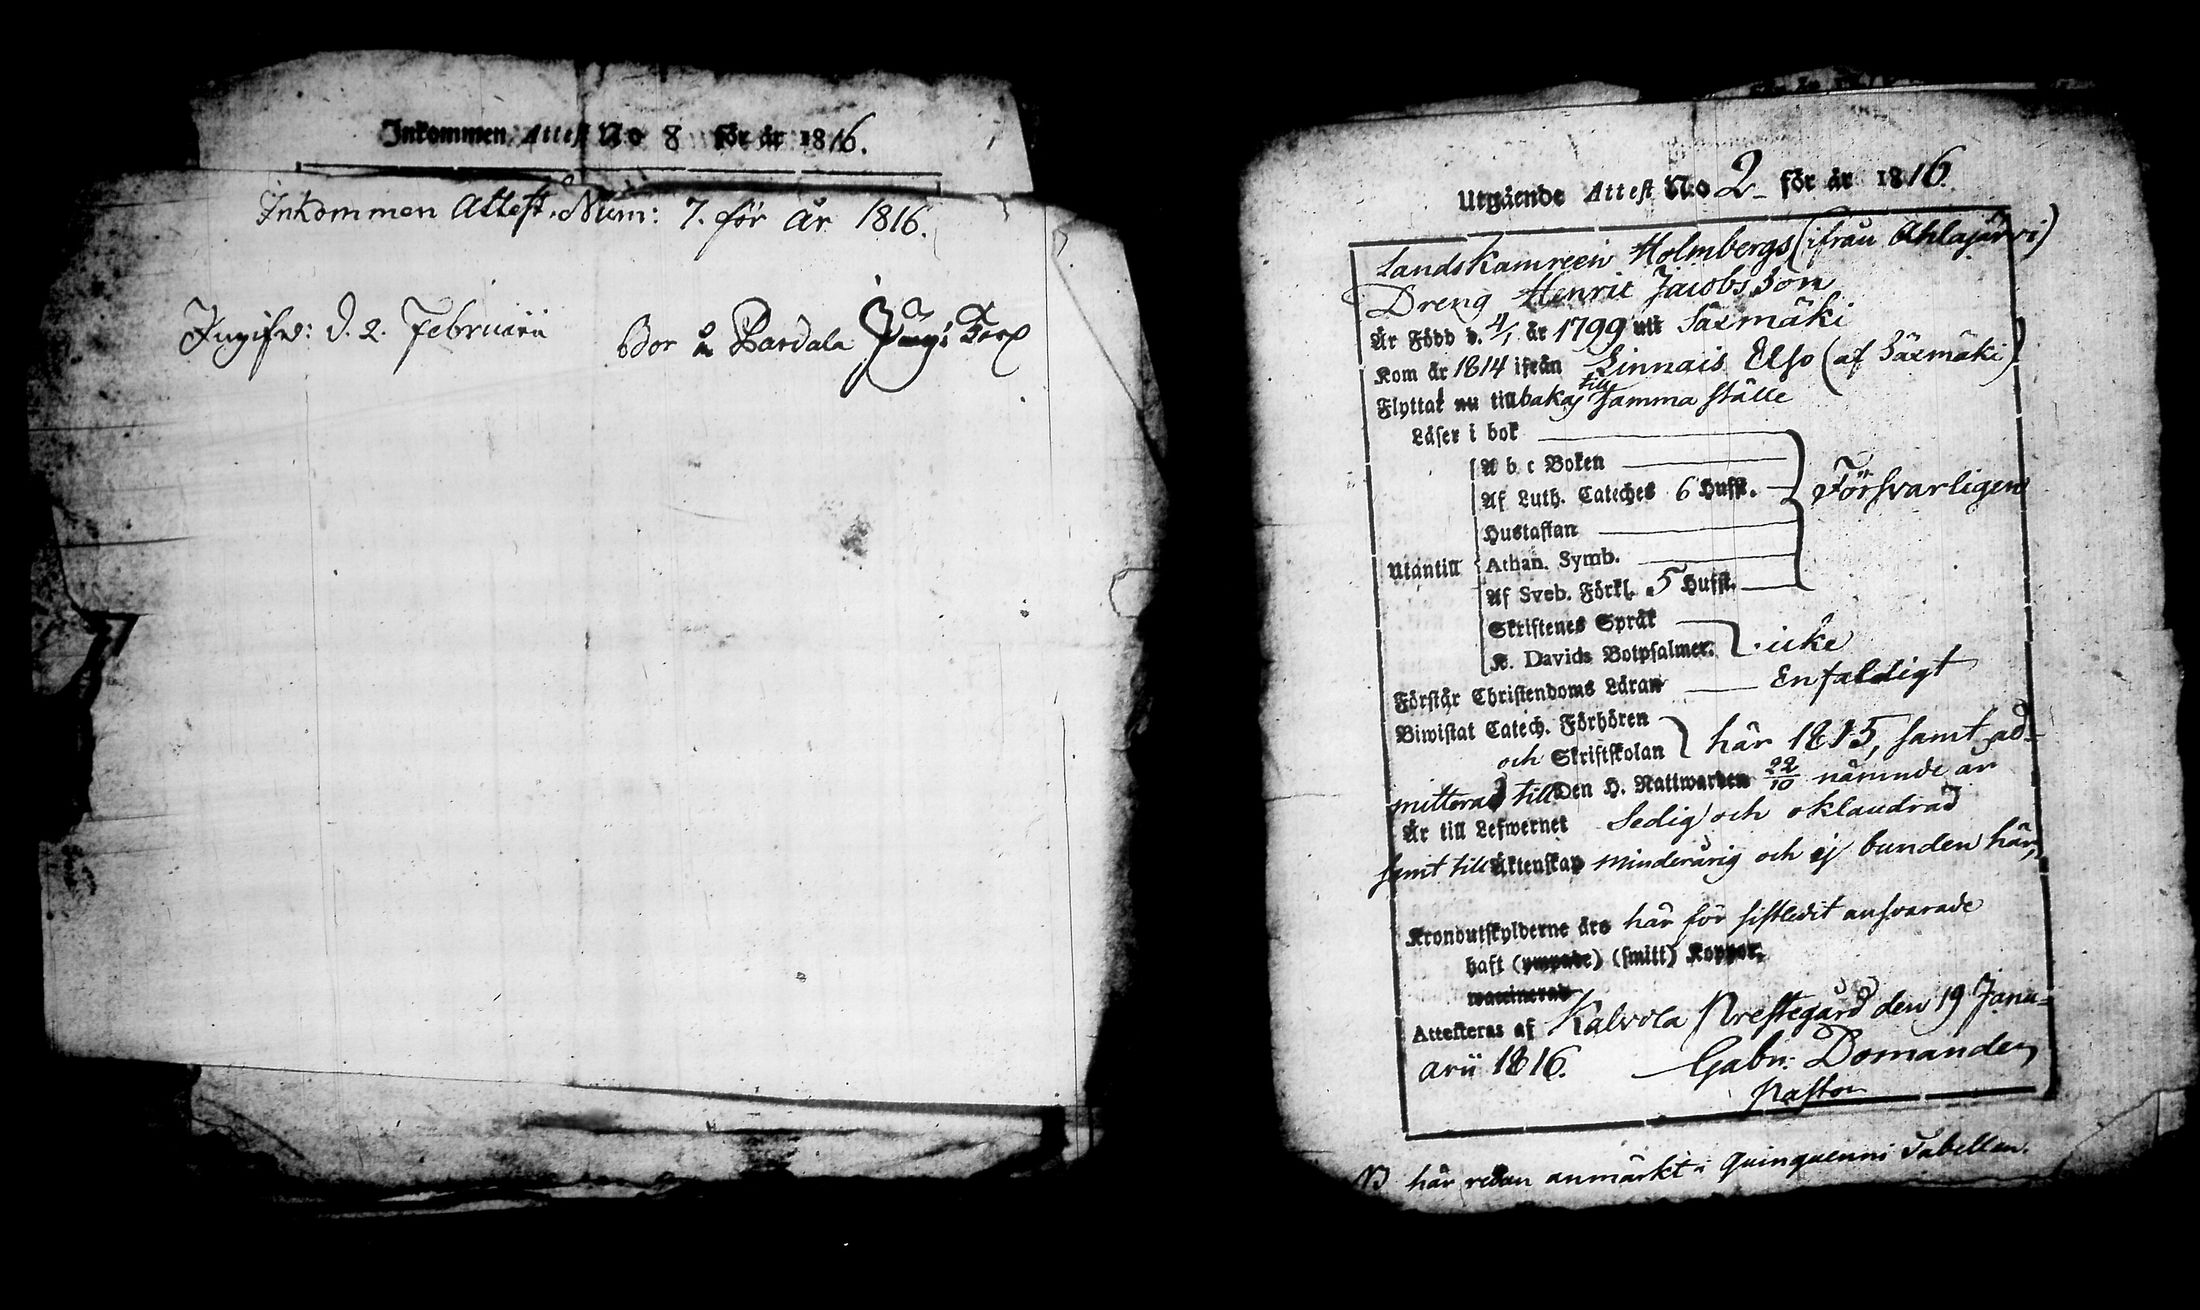 Inkommen Attest No 8 för år 1816.
Inkommen Attest. Num: 7. för år 1816.
Ingifv: d. 2. Februarii Bor å Pardala Torp
Utgående Attest N:o 2 för år 1816
Landskamreen Holmbergs (ifrån Ahlajärvi)
Dreng Henric Jacobsson
Är Född d. 4/1 år 1799 uti Säxmäki
Kom år 1814 ifrån Linnais Elso (af Säxmäki)
Flyttat nu tillbaka till samma ställe
Läser i bok
A b c Boken
Af Luth. Cateches 6 Hufst.
Försvarligen
Hustaflan
Utantill
Athan. Symb.
Af Sveb. Förkl. 5 Hufst.
Skriftenes Språk
K. Davids Botpsalmer.
icke
Förstår Christendoms Läran Enfaldigt
Biwistat Catech. Förhören
och Skriftskolan
här 1815, samt ad-
mitterad till Den H. Nattwarden 22/10 nämnde år
Är till Lefwernet Sedig och oklandrad
samt till Äktenskap minderårig och ej bunden här,
Kronoutskylderne äro här för sistledit ansvarade
haft (ympade) (smitt) Koppor.
waccinerad
Attesteras af Kalvola Prestegård den 19 Janu-
arii 1816. Gabr: Domander
Pastor
NB här redan anmärkt i Quinquenni Tabellen.